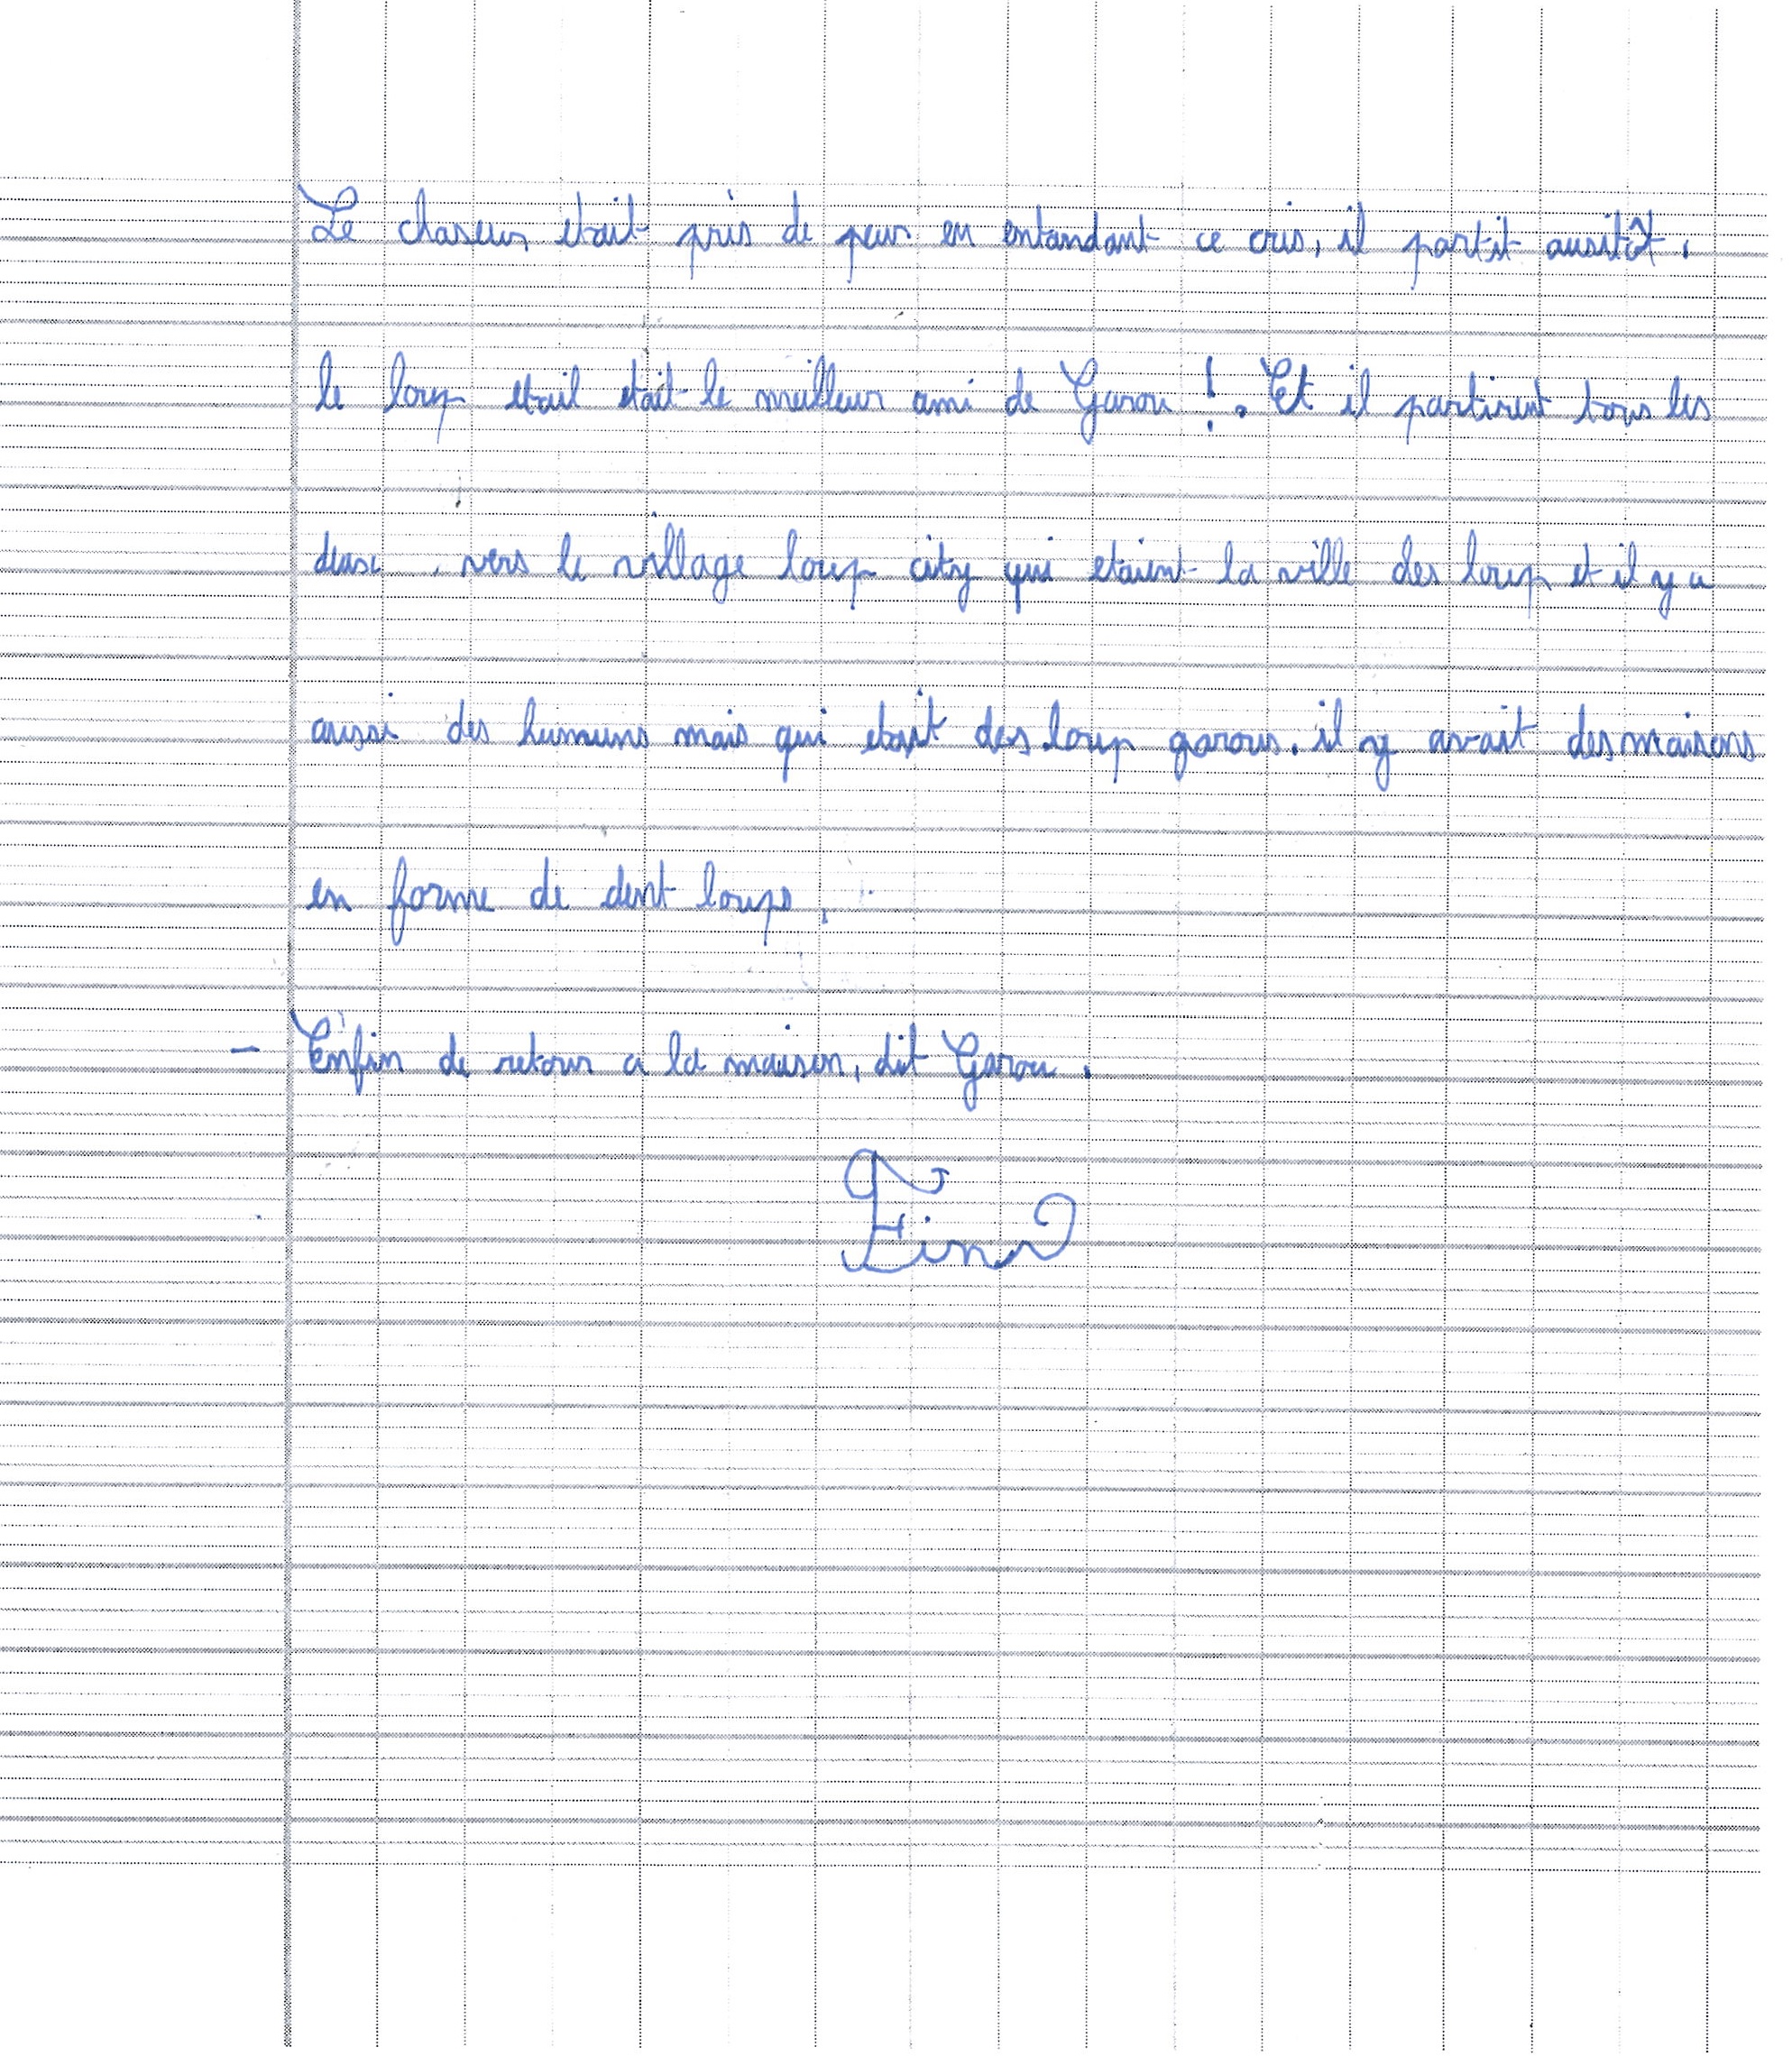 Le chaseur etait pris de peur en entandant ce cris, il partit ausitôt.
le loup etail etait le meilleur ami de Garou !. Et il partirent tous les
deux, vers le village loup city qui etaient la ville des loup et il y a
aussi des humains mais qui etait des loup garous. il y avait des maisons
en forme de dent loups.
- Enfin de retour a la maison, dit Garou.
Fin